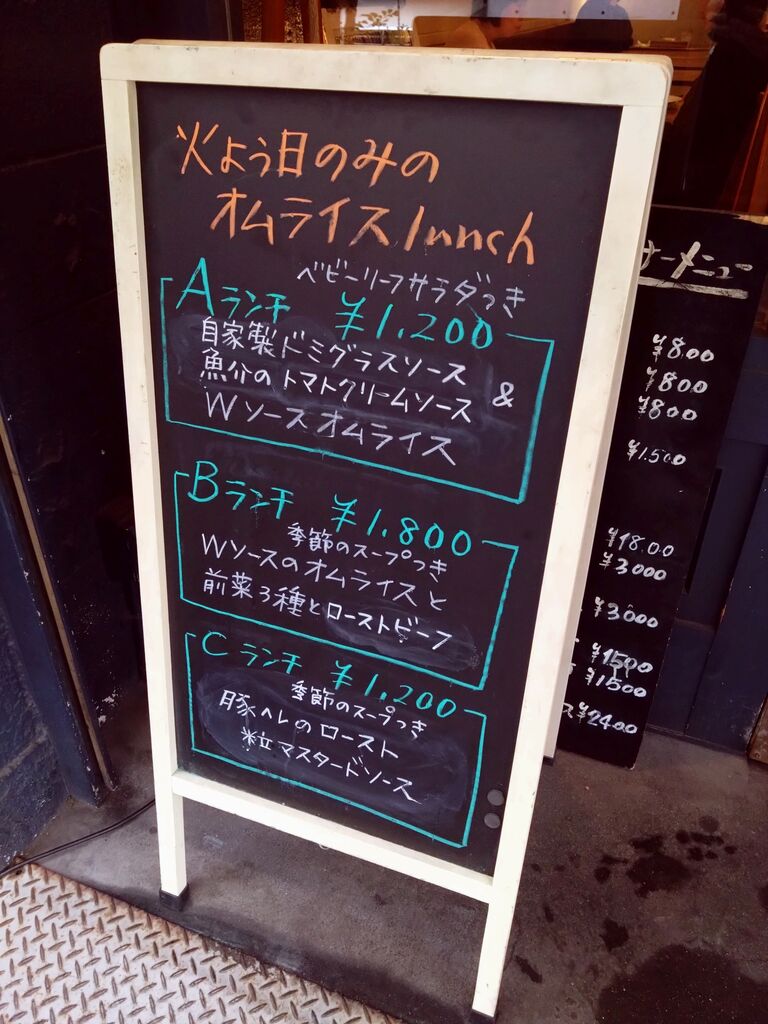 火よう日のみの
オムライスlunch
ベビーリーフサラダつき
Aランチ ¥1,200
自家製ドミグラスソース &
魚介のトマトクリームソース
Wソースオムライス
Bランチ ¥1,800
季節のスープつき
Wソースのオムライスと
前菜3種とローストビーフ
Cランチ ¥1,200
季節のスープつき
豚ヘレのロースト
粒マスタードソース
ーメニュー
¥800
¥800
¥800
¥1,500
¥1800
¥3000
¥3000
¥1500
¥1500
¥2400